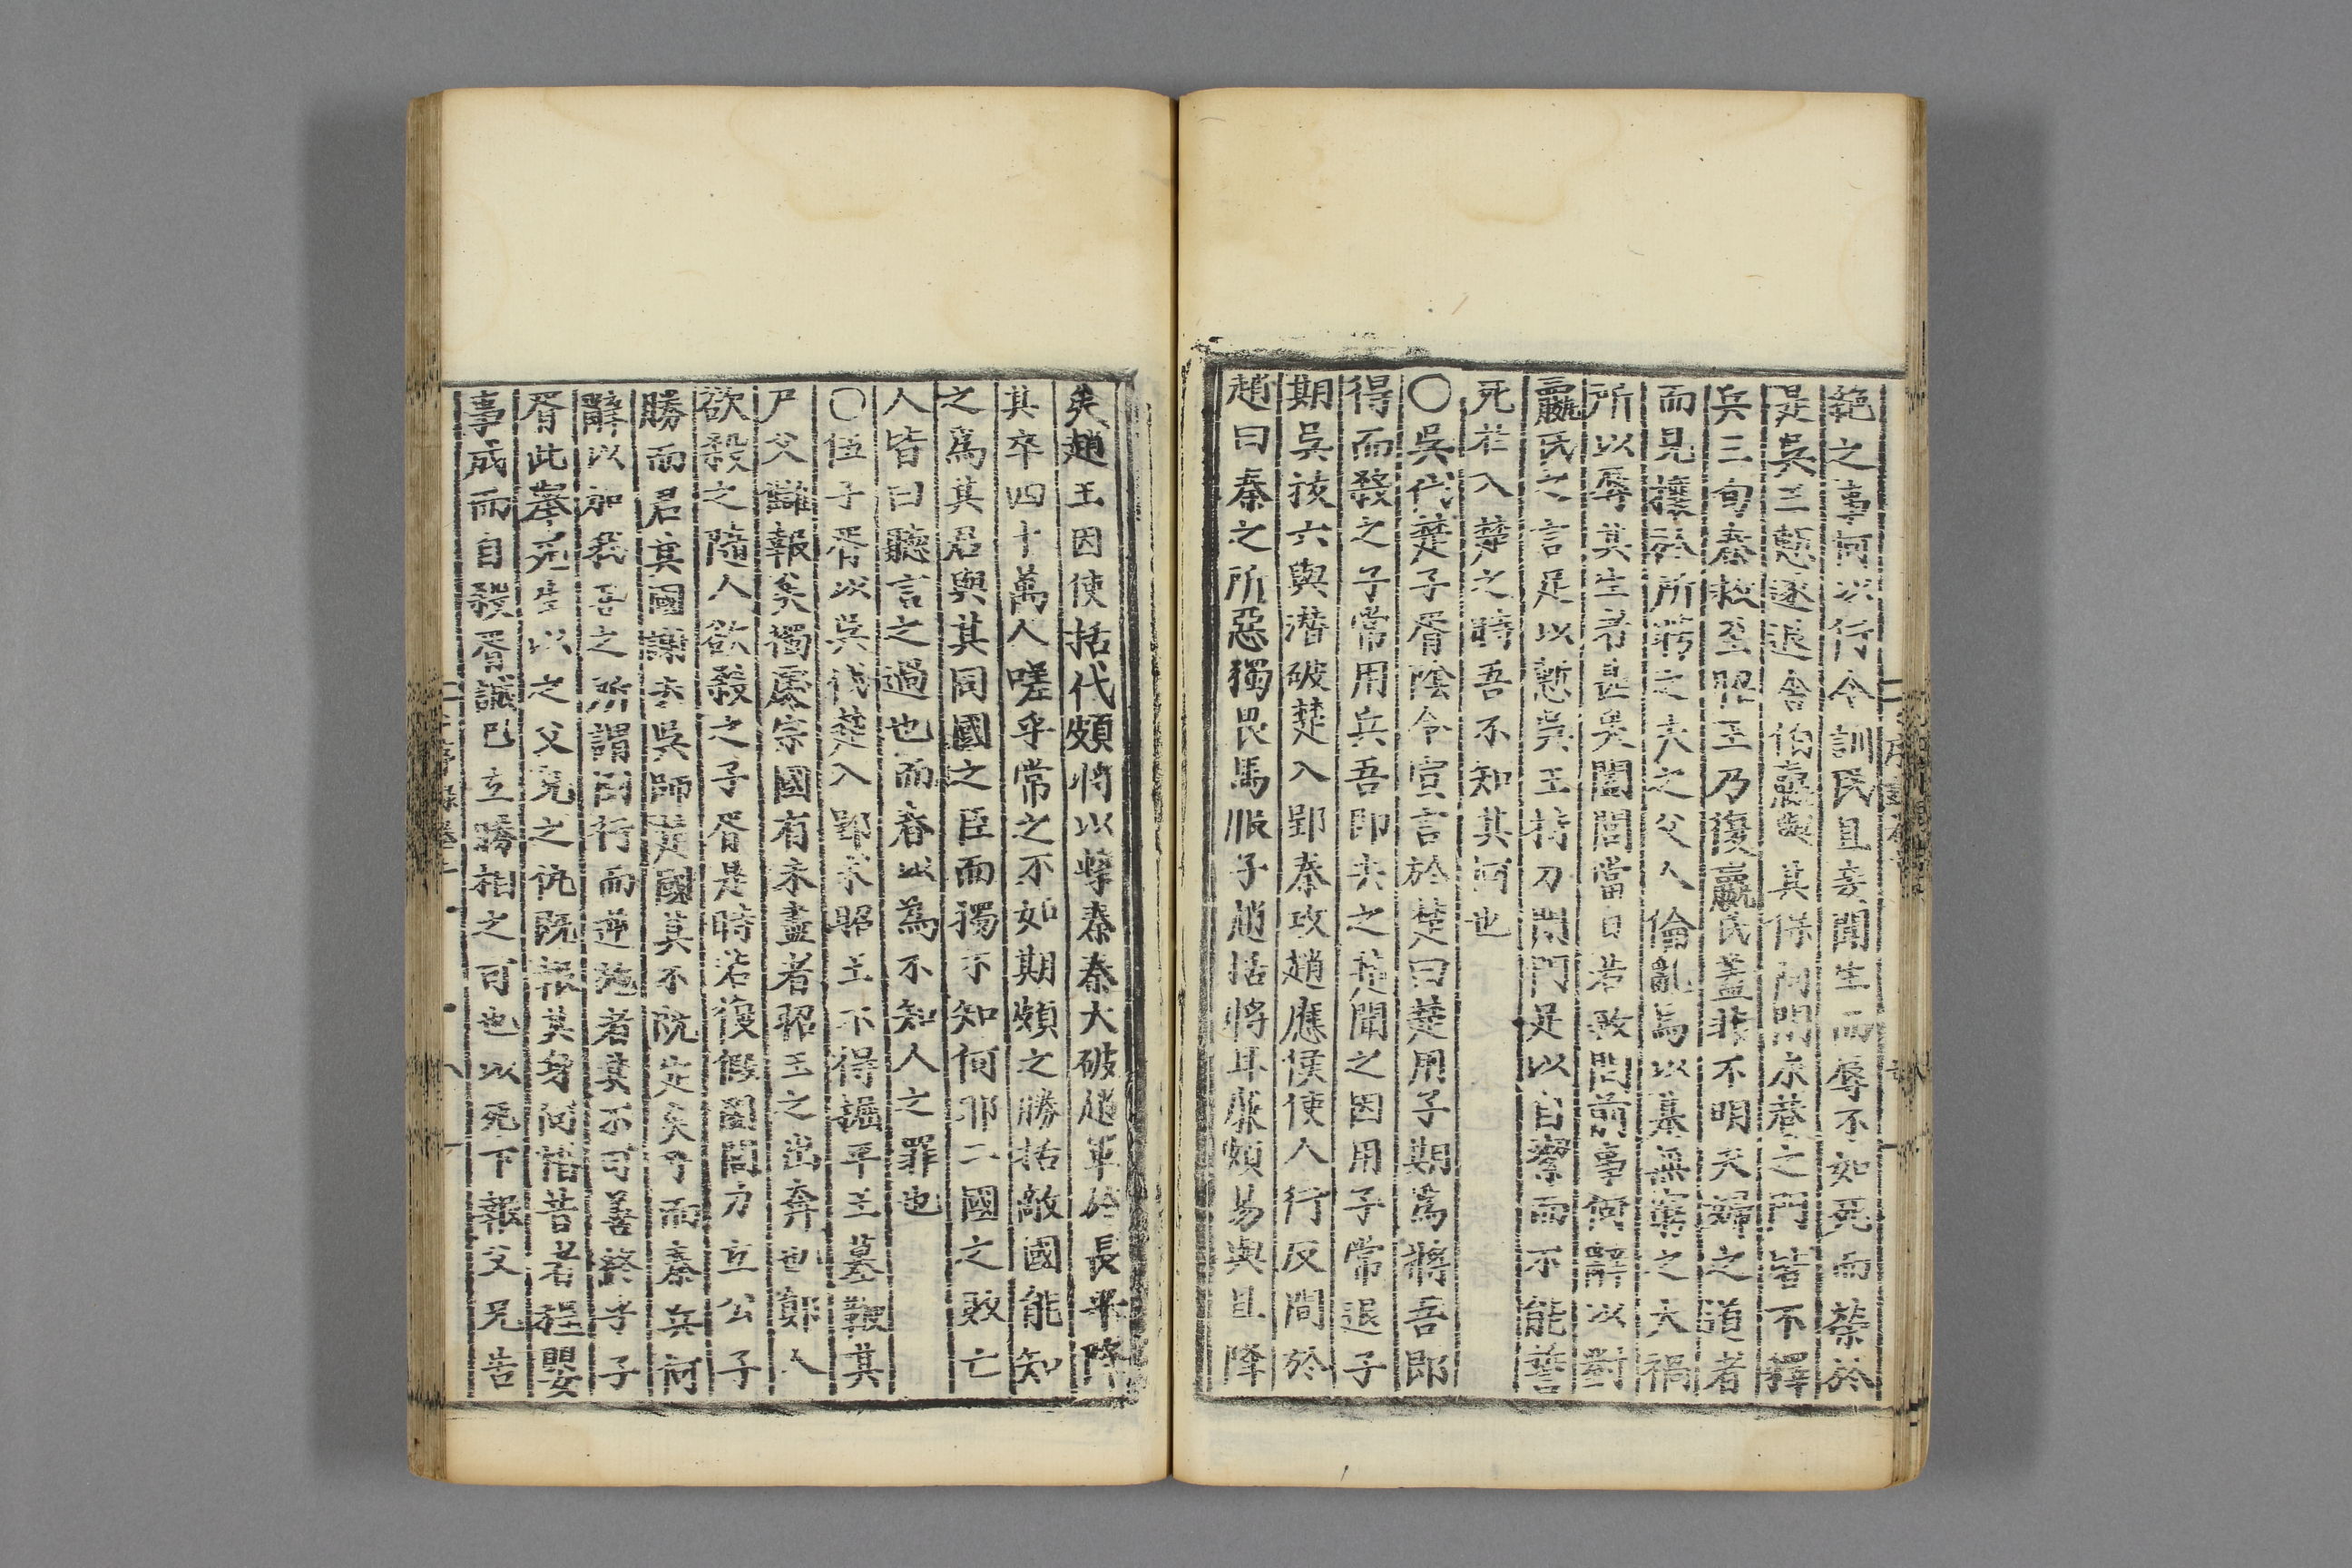 絶之事何以行令訓民且妾聞生而辱不如死而榮於
是吳王慙遂退舍伯嬴與其保阿閉永巷之門皆不釋
兵三旬秦救至昭王乃復嬴氏蓋非不明夫婦之道者
而見攘於所窮之夫之父人倫亂焉以基無窮之大禍
所以辱其生者甚矣闔閭當日若敢問前事何辭以對
嬴氏之言足以慙吳王持刀閉門足以自潔而不能蓍
死於入楚之時吾不知其何也
○吳伐楚子胥陰令宣言於楚曰楚用子期爲將吾即
得而殺之子常用兵吾即去之楚聞之因用子常退子
期吳拔六與潛破楚入郢秦攻趙應侯使人行反間於
趙曰秦之所惡獨畏馬服子趙括將耳廉頗易與且降
矣趙王因使括代頗將以擊秦秦大破趙軍於長平降
其卒四十萬人嗟乎常之不如期頗之勝括敵國能知
之爲其君與其同國之臣而獨不知何耶二國之敗亡
人皆曰聽言之過也而春以爲不知人之罪也
○伍子胥以吳伐楚入郢求昭王不得掘平王墓鞭其
尸父讎報矣獨處宗國有未盡者昭王之出奔也鄖人
欲殺之隨人欲殺之子胥是時若復假闔閭力立公子
勝而君其國謝去吳師楚國莫不阮定矣乎而秦兵何
辭以加我吾之所謂倒行而逆施者莫不可善終子子
胥此舉死生以之父兄之仇既報其身何惜昔者程嬰
事成而自殺胥誠已立勝相之可也以死下報父兄告